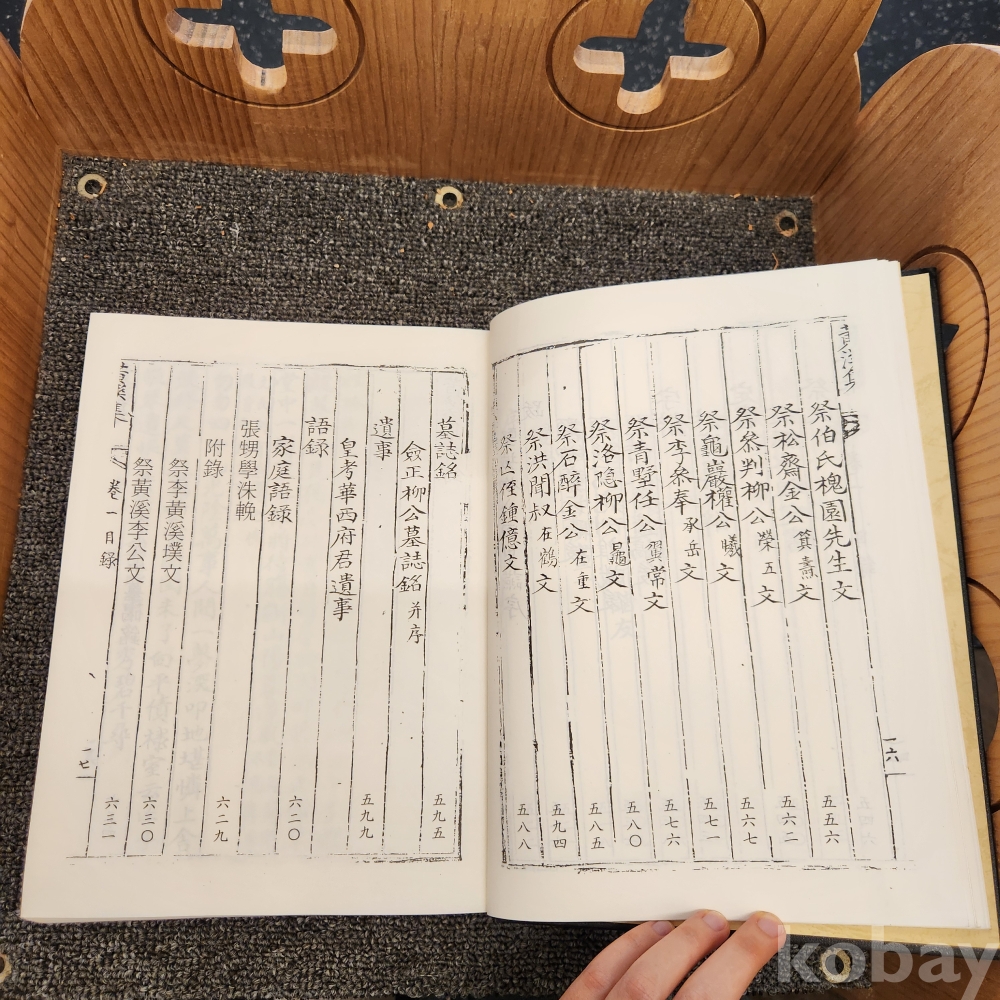 祭伯氏槐園先生文 五五六
祭松齋金公 箕燾 文 五六二
祭參判柳公 榮五 文 五六七
祭龜巖權公 㬢 文 五七一
祭李參奉 承岳 文 五七六
祭青墅任公 翼常 文 五八〇
祭洛隐柳公 文 五八五
祭石醉金公 在重 文 五九四
祭洪聞叔 在鶴 文 五八八
祭亡侄鍾億文
一六
墓誌銘 五九五
僉正柳公墓誌銘 并序
遺事 五九九
皇考華西府君遺事
語錄
家庭語錄 六二〇
張甥學洙輓
附錄 六二九
祭李黃溪墣文
祭黃溪李公文 六三〇
卷一 目錄 六三一
一七
kobay